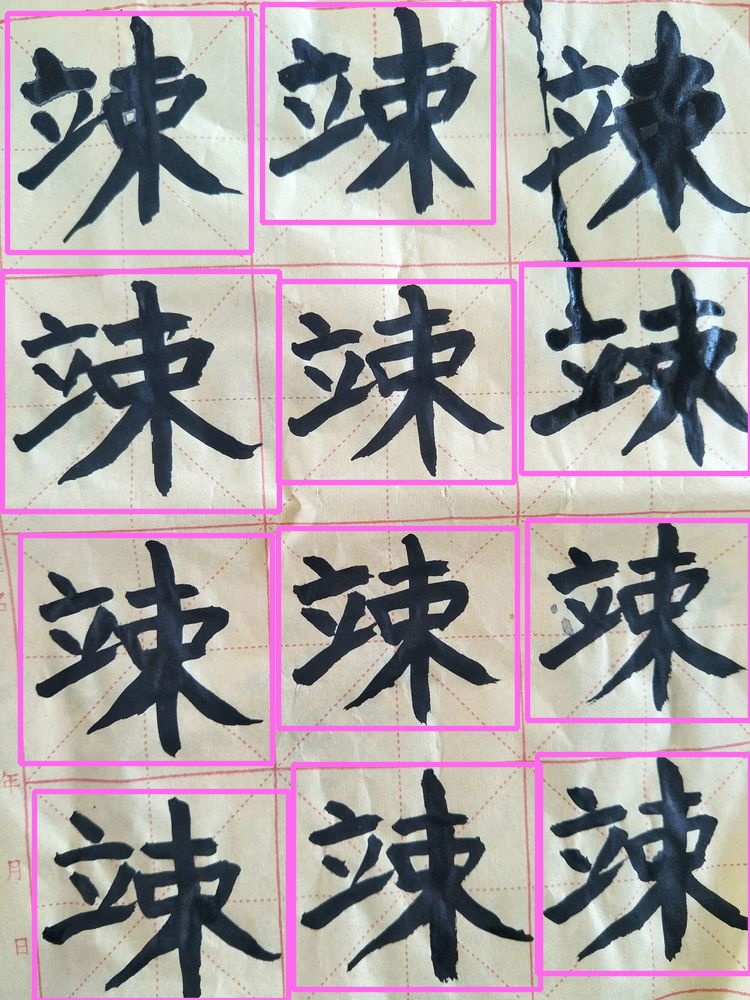 竦 竦 竦
竦 竦 竦
竦 竦 竦
竦 竦 竦
年
月
日